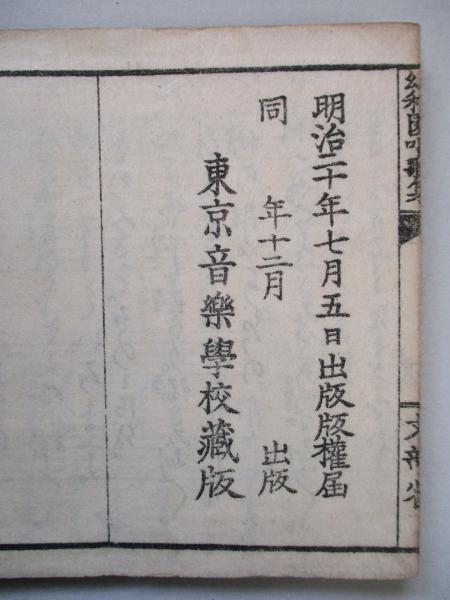 幼稚園唱歌集
文部省
明治二十年七月五日出版版權届
同 年十二月 出版
東京音樂學校藏版